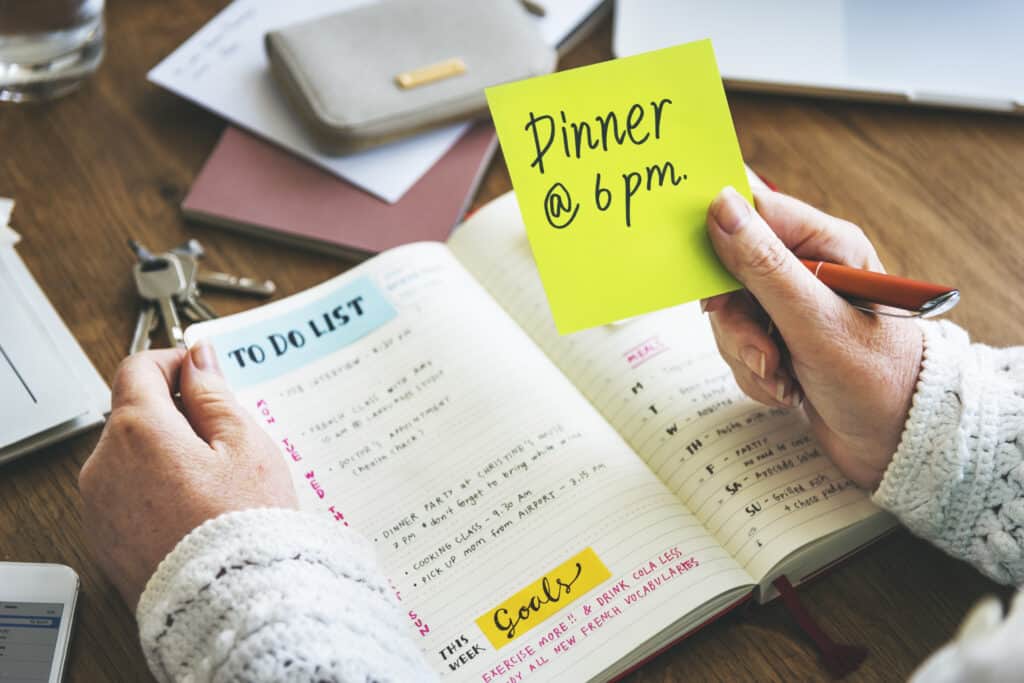 Dinner
@ 6 pm.
TO DO LIST
JOB INTERVIEW - 4:30 PM
MON
TUE
WED
THU
SUN
FRENCH CLASS WITH AMY
10 am @ LANGUAGES COUPE
DOCTOR'S APPOINTMENT
(health check)
DINNER PARTY AT CHRISTINE'S HOUSE
7 PM * don't forget to bring white wine
COOKING CLASS - 9.30 AM
PICK UP MOM FROM AIRPORT - 2.15 PM
THIS
WEEK
Goals
EXERCISE MORE!! & DRINK COLA LESS
ALL NEW FRENCH VOCABULARIES
MEALS
M
T
W
TH - Pasta
F - PARTY
no need to cook
SA - Avocado Salad
SU - Grilled Fish